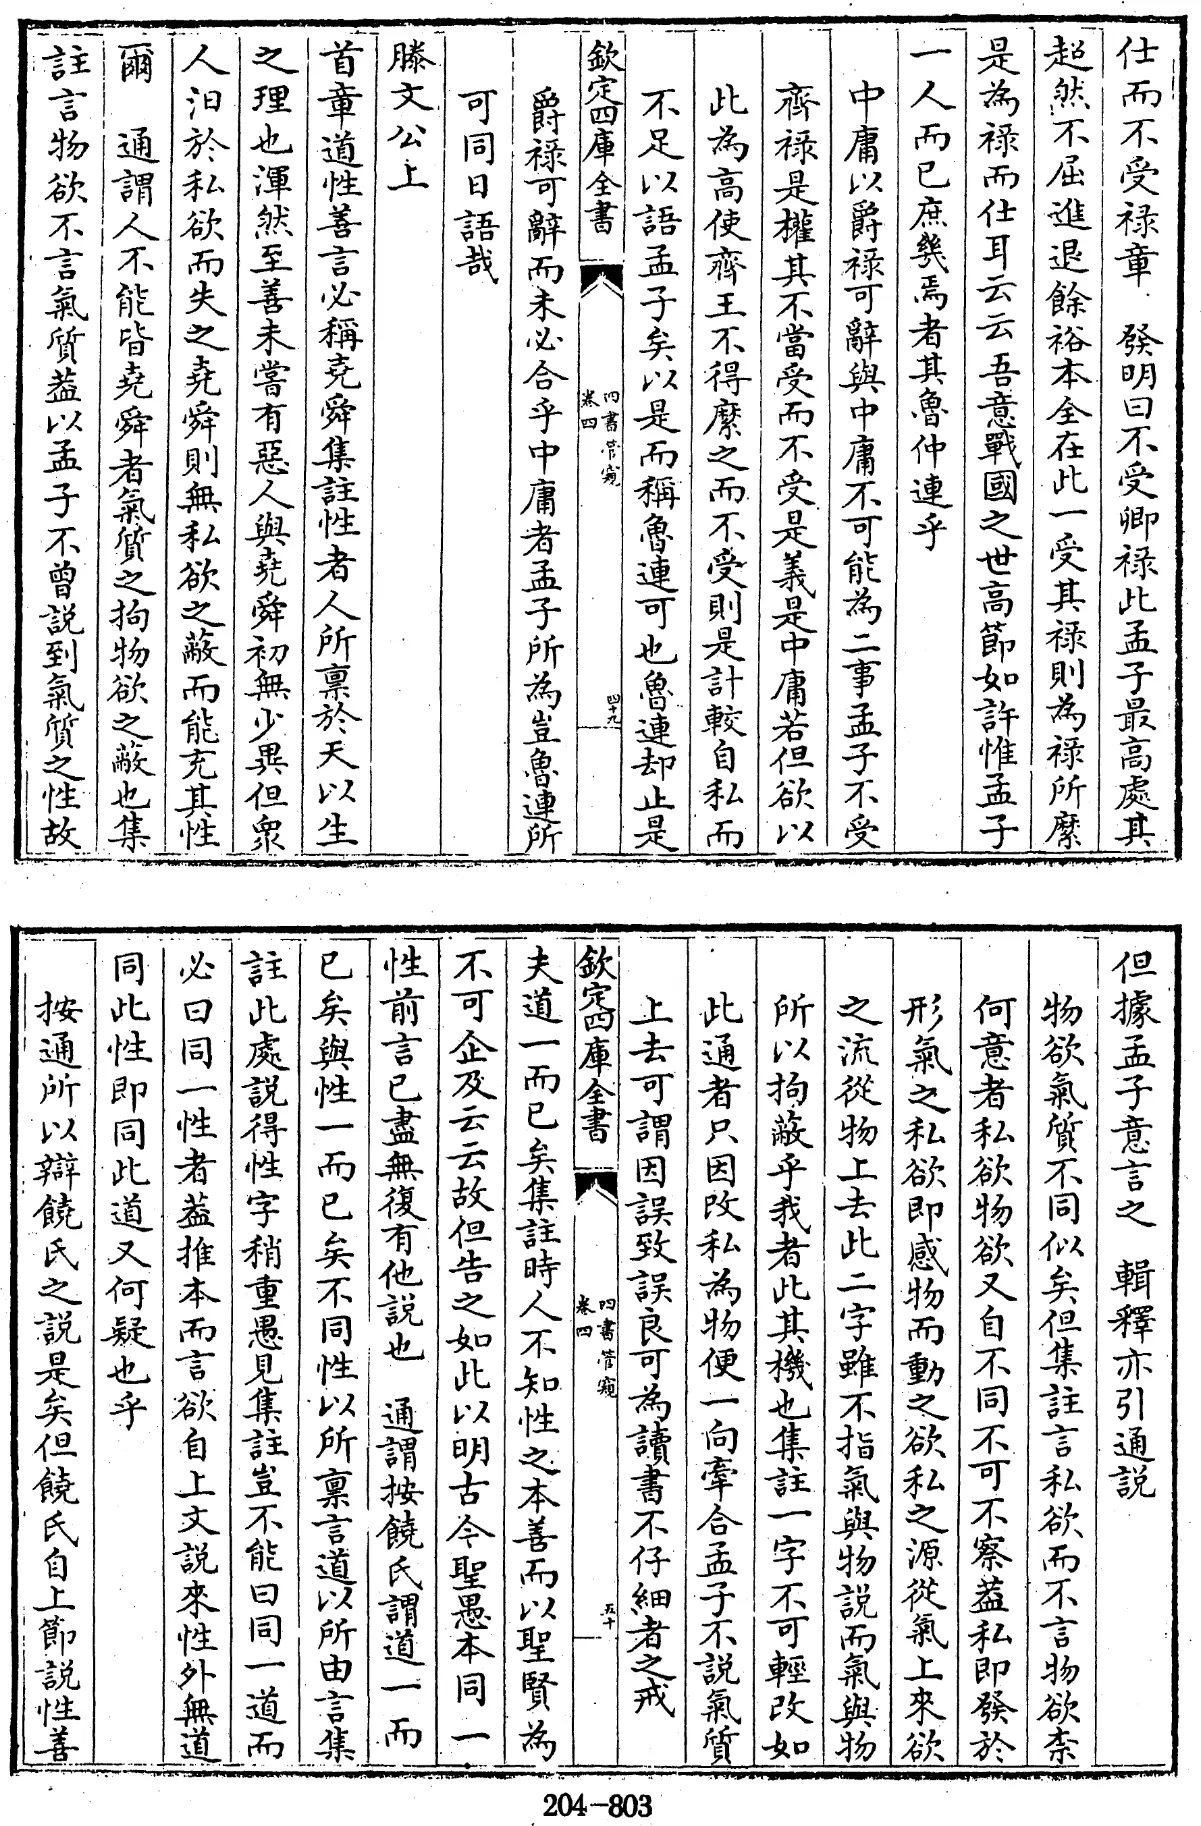 仕而不受禄章　發明曰不受卿禄此孟子最高處其
超然不屈進退餘裕本全在此一受其禄則為禄所縻
是為禄而仕耳云云吾意戰國之世高節如許惟孟子
一人而已庶幾焉者其魯仲連乎
中庸以爵禄可辭與中庸不可能為二事孟子不受
齊禄是權其不當受而不受是義是中庸若但欲以
此為高使齊王不得縻之而不受則是計較自私而
不足以語孟子矣以是而稱魯連可也魯連却止是
欽定四庫全書
四書管窺
卷四
四十九
爵禄可辭而未必合乎中庸者孟子所為豈魯連所
可同日語哉
滕文公上
首章道性善言必稱堯舜集註性者人所稟於天以生
之理也渾然至善未嘗有惡人與堯舜初無少異但衆
人汨於私欲而失之堯舜則無私欲之蔽而能充其性
爾　通謂人不能皆堯舜者氣質之拘物欲之蔽也集
註言物欲不言氣質葢以孟子不曾説到氣質之性故
但據孟子意言之　輯釋亦引通説
物欲氣質不同似矣但集註言私欲而不言物欲柰
何意者私欲物欲又自不同不可不察葢私即發於
形氣之私欲即感物而動之欲私之源從氣上來欲
之流從物上去此二字雖不指氣與物説而氣與物
所以拘蔽乎我者此其機也集註一字不可輕改如
此通者只因改私為物便一向牽合孟子不説氣質
上去可謂因誤致誤良可為讀書不仔細者之戒
欽定四庫全書
四書管窺
卷四
五十
夫道一而已矣集註時人不知性之本善而以聖賢為
不可企及云云故但告之如此以明古今聖愚本同一
性前言已盡無復有他説也　通謂按饒氏謂道一而
已矣與性一而已矣不同性以所稟言道以所由言集
註此處説得性字稍重愚見集註豈不能曰同一道而
必曰同一性者葢推本而言欲自上文説來性外無道
同此性即同此道又何疑也乎
按通所以辯饒氏之説是矣但饒氏自上節説性善
204-803